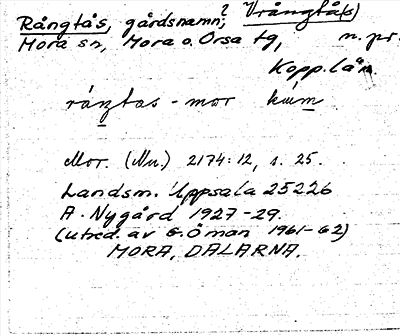 Rångtås, gårdsnamn; ? Vrångtå(s)
Mora sn, Mora o. Orsa tg, n. pr.
Kopp. län.
Mor. (Nu.) 2174:12, s. 25.
Landsm. Uppsala 25226
A. Nygård 1927-29.
(utred. av G. Öman 1961-62)
MORA, DALARNA.